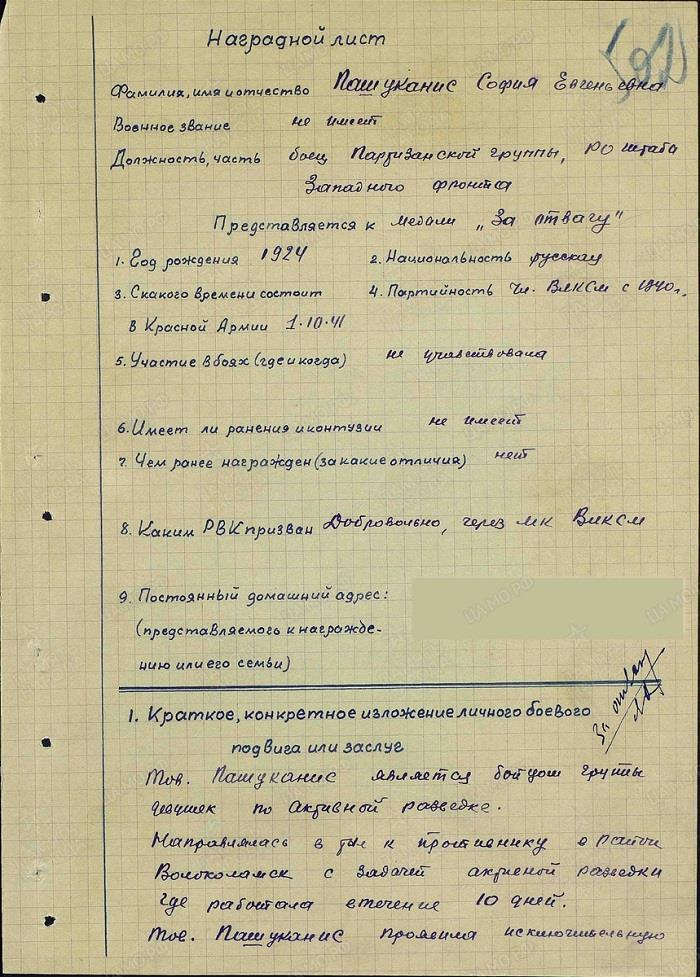 Наградной лист
Фамилия, имя и отчество Пашуканис София Евгеньевна
Военное звание не имеет
Должность, часть боец Партизанской группы, РО штаба
Западного фронта
Представляется к медали „За отвагу"
1. Год рождения 1924 2. Национальность русская
3. С какого времени состоит 4. Партийность чл. ВЛКСМ с 1940 г.
в Красной Армии 1.10.41
5. Участие в боях (где и когда) не участвовала
6. Имеет ли ранения и контузии не имеет
7. Чем ранее награжден (за какие отличия) нет
8. Каким РВК призван Добровольно, через МК ВЛКСМ
9. Постоянный домашний адрес:
(представляемого к награжде-
нию или его семьи)
За отвагу
1. Краткое, конкретное изложение личного боевого
подвига или заслуг
Тов. Пашуканис является бойцом группы
девушек по активной разведке.
Направлялась в тыл к противнику в район
Волоколамск с задачей активной разведки
где работала в течение 10 дней.
Тов. Пашуканис проявила исключительную